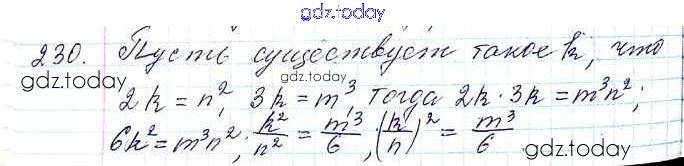 gdz.today
230. Пусть существует такое k, что
gdz.today gdz.today
2k = n², 3k = m³, тогда 2k · 3k = m³n²;
6k² = m³n²; k²/n² = m³/6; (k/n)² = m³/6
gdz.today